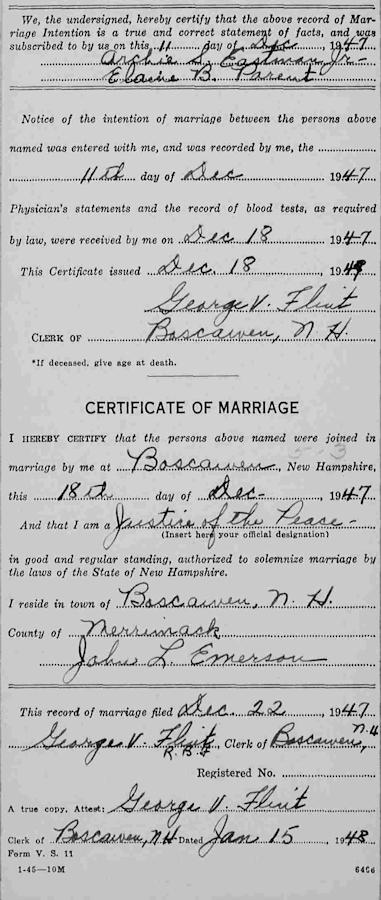 We, the undersigned, hereby certify that the above record of Mar-
riage Intention is a true and correct statement of facts, and was
subscribed to by us on this 11 day of Dec 1947
Archie L. Eastman, Jr-
Elaine B. Parent
Notice of the intention of marriage between the persons above
named was entered with me, and was recorded by me, the
11th day of Dec 1947
Physician's statements and the record of blood tests, as required
by law, were received by me on Dec 18 1947
This Certificate issued Dec. 18, 194
George V. Flint
CLERK OF Boscawen, N H
*If deceased, give age at death.
CERTIFICATE OF MARRIAGE
I HEREBY CERTIFY that the persons above named were joined in
5-3
marriage by me at Boscawen, New Hampshire,
this 18th day of Dec-, 1947
And that I am a Justice of the Peace-
(Insert here your official designation)
in good and regular standing, authorized to solemnize marriage by
the laws of the State of New Hampshire.
I reside in town of Boscawen, N. H.
County of Merrimack
John L. Emerson
This record of marriage filed Dec. 22, 1947
George V. Flint, Clerk of Boscawen, N.H
R.B.F
Registered No.
A true copy, Attest: George V. Flint
Clerk of Boscawen, NH Dated Jan 15, 1948
Form V. S. 11
1-45—10M 6496